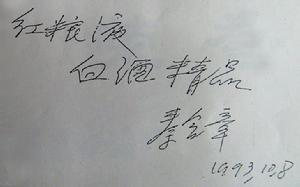 红粮液
白酒精品
秦含章
1993,10,8